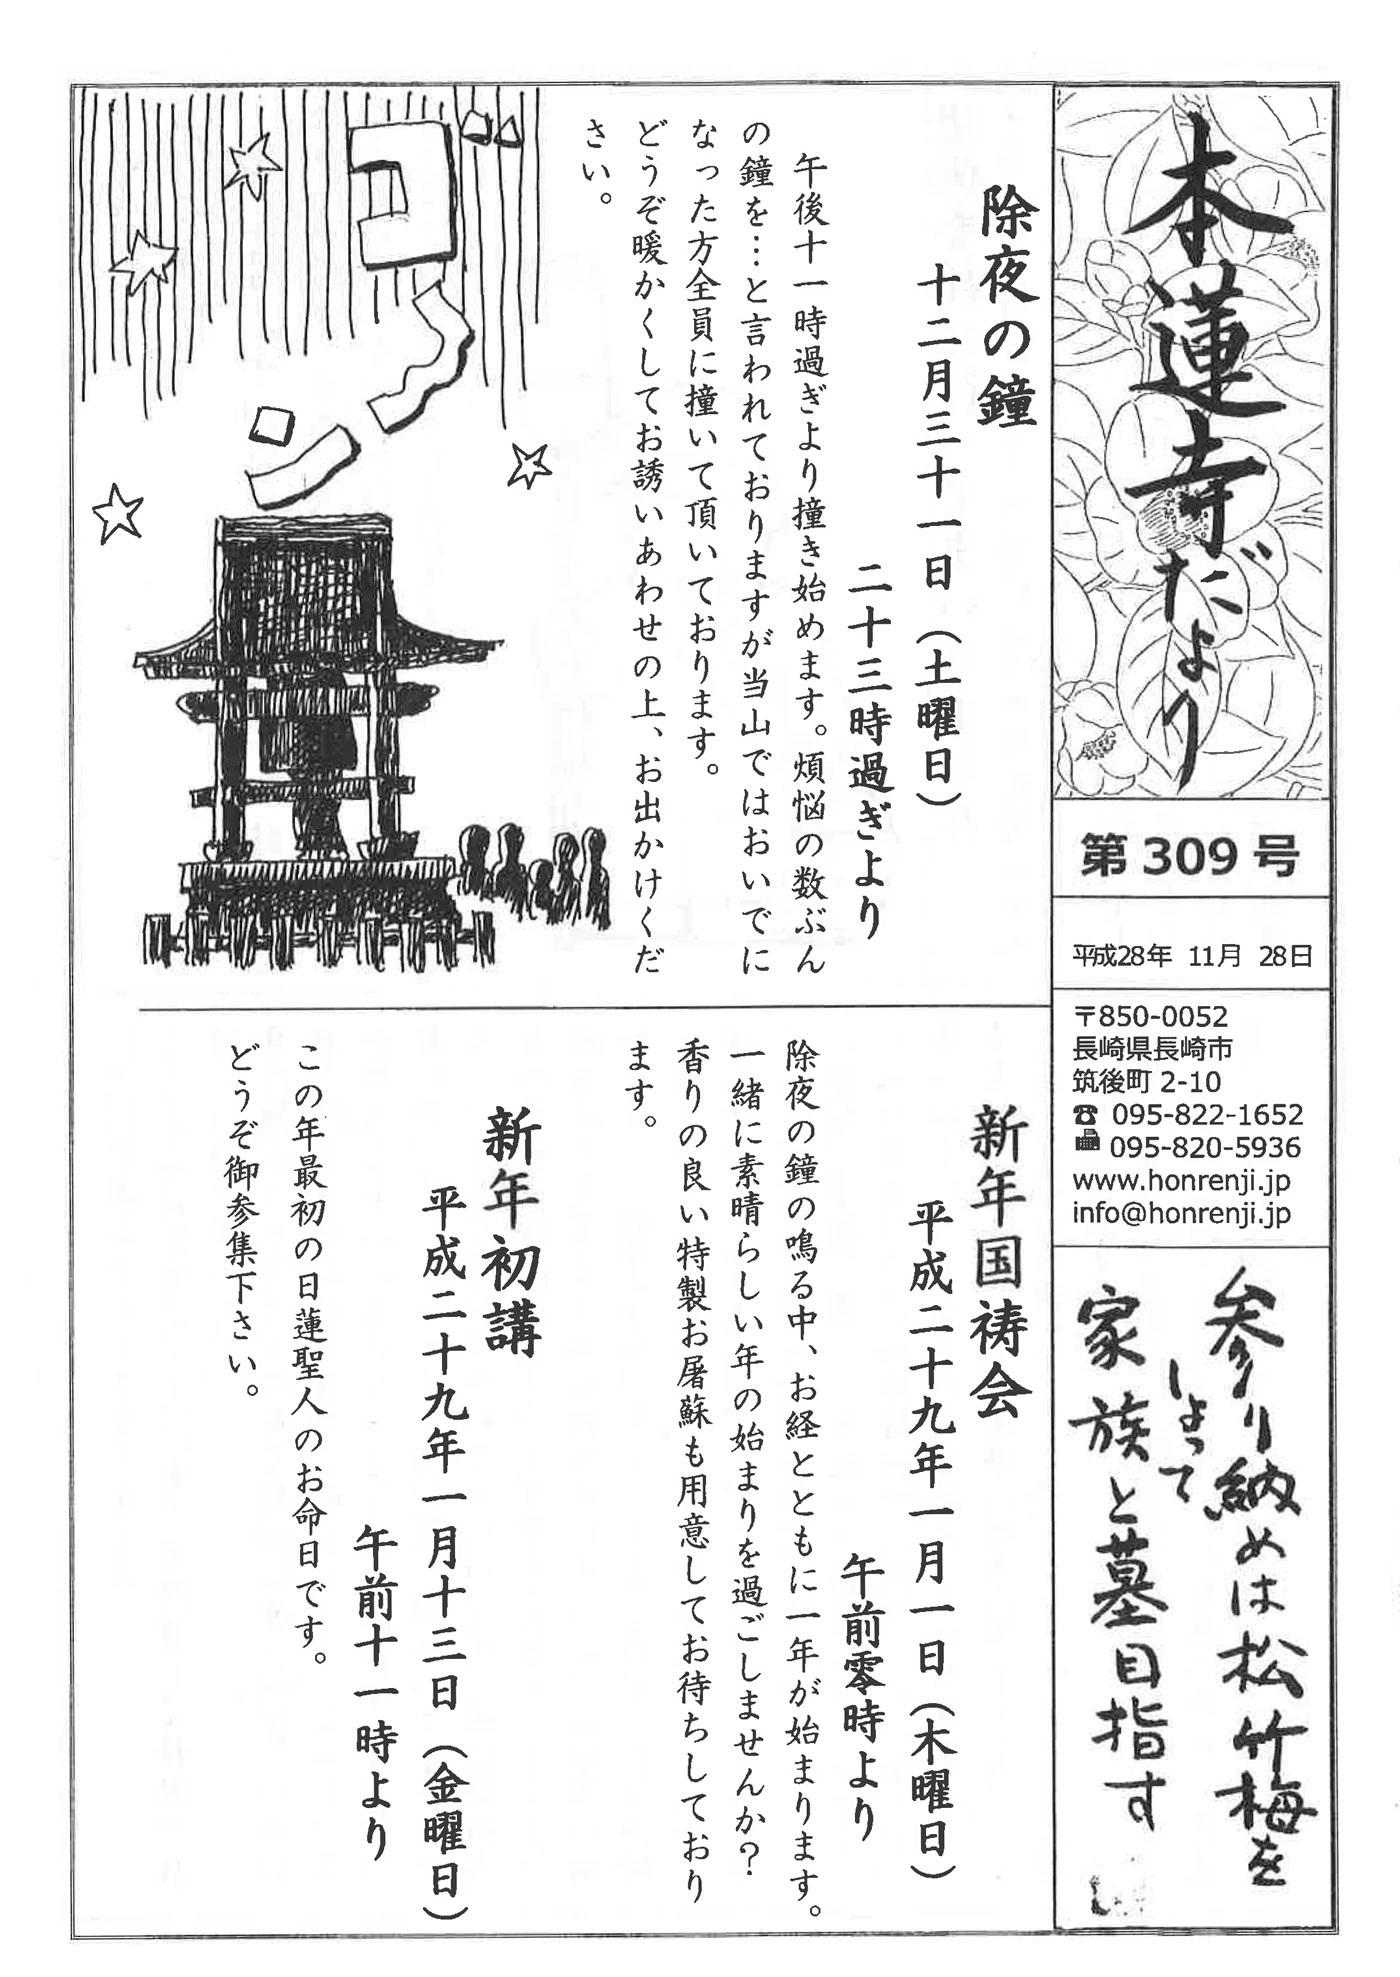 本蓮寺だより
第309号
平成28年 11月 28日
〒850-0052
長崎県長崎市
筑後町 2-10
☎ 095-822-1652
095-820-5936
www.honrenji.jp
info@honrenji.jp
参り納めは松竹梅を
しょって
家族と墓目指す
除夜の鐘
十二月三十一日（土曜日）
二十三時過ぎより
午後十一時過ぎより撞き始めます。煩悩の数ぶん
の鐘を…と言われておりますが当山ではおいでに
なった方全員に撞いて頂いております。
どうぞ暖かくしてお誘いあわせの上、お出かけくだ
さい。
ゴ
ーン
新年国祷会
平成二十九年一月一日（木曜日）
午前零時より
除夜の鐘の鳴る中、お経とともに一年が始まります。
一緒に素晴らしい年の始まりを過ごしませんか？
香りの良い特製お屠蘇も用意してお待ちしており
ます。
新年初講
平成二十九年一月十三日（金曜日）
午前十一時より
この年最初の日蓮聖人のお命日です。
どうぞ御参集下さい。